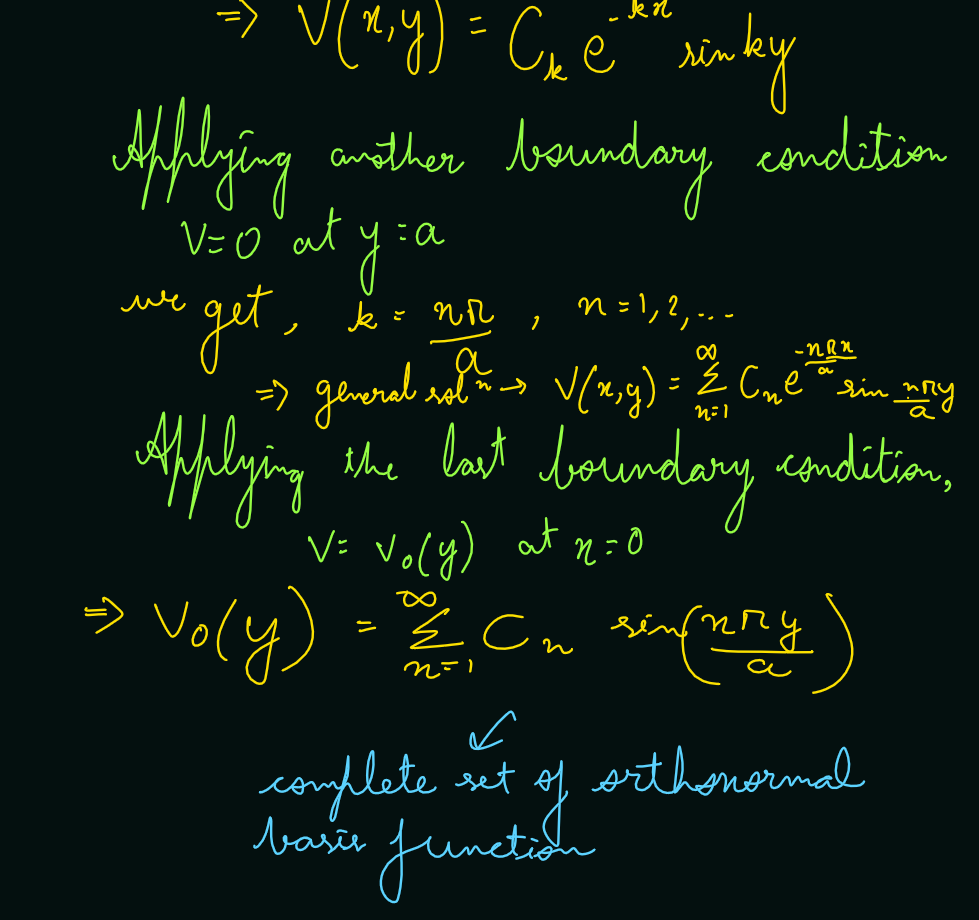 ⇒ V(x,y) = C_k e^{-kx} sin ky
Applying another boundary condition
V=0 at y=a
we get, k = nπ/a , n=1,2,...
⇒ general solⁿ → V(x,y) = ∑_{n=1}^{∞} C_n e^{-nπx/a} sin nπy/a
Applying the last boundary condition,
V= V₀(y) at x=0
⇒ V₀(y) = ∑_{n=1}^{∞} C_n sin(nπy/a)
↙
complete set of orthonormal
basis function